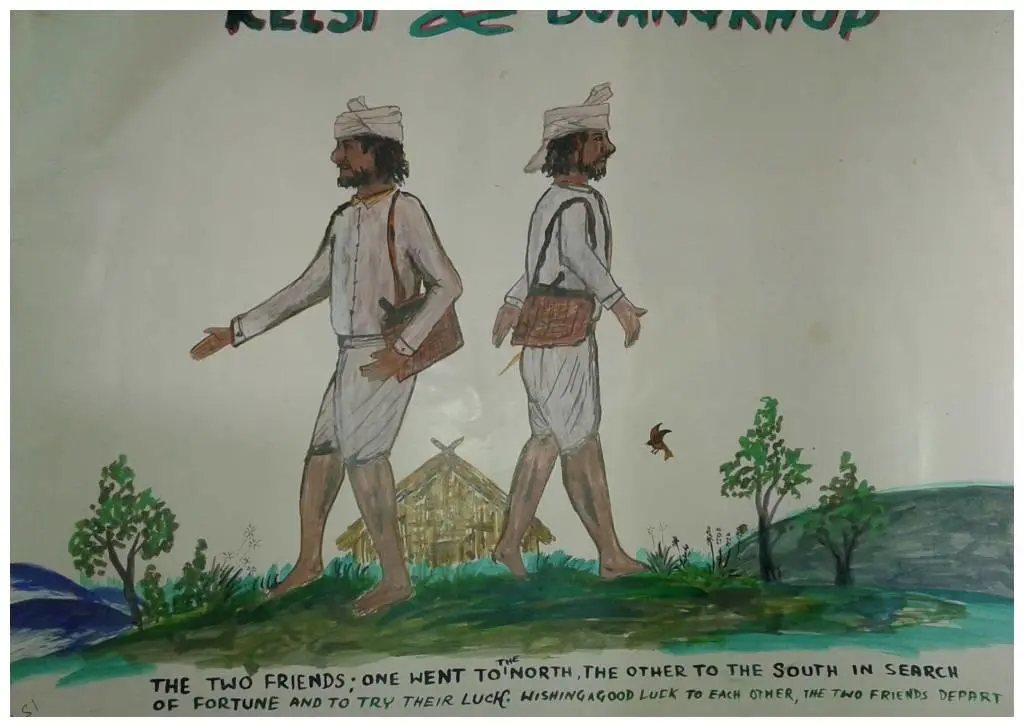 KELSI & BUANGKHUP
THE TWO FRIENDS; ONE WENT TO THE NORTH, THE OTHER TO THE SOUTH IN SEARCH
OF FORTUNE AND TO TRY THEIR LUCK. WISHING A GOOD LUCK TO EACH OTHER, THE TWO FRIENDS DEPART